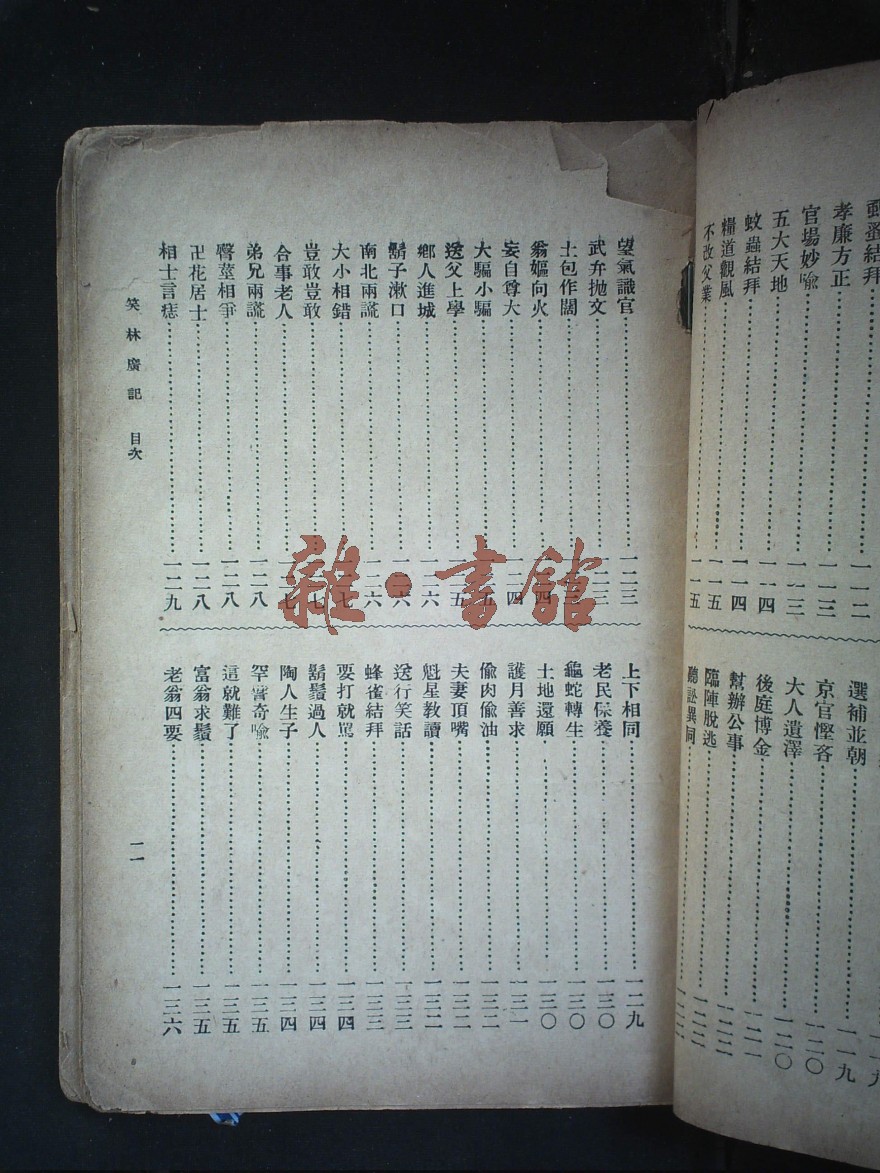 孝廉方正……一一三
官場妙喻……一一三
五大天地……一一四
蚊蟲結拜……一一四
糧道觀風……一一五
不改父業……一一五
選補並朝……一一九
京官慳吝……一二〇
大人遺澤……一二〇
後庭博金……一二一
幫辦公事……一二二
臨陣脫逃……一二二
聽訟異同……一二二
望氣識官……一二三
武弁拋文……一二三
土包作闊
翁嫗向火……四
妄自尊大……一二四
大騙小騙……五
送父上學……一二五
鄉人進城……一二六
鬍子漱口……六
南北兩謊……一二六
大小相錯……七
豈敢豈敢……七
合事老人……七
弟兄兩謊……一二八
聾瞽相爭……一二八
卍花居士……一二八
相士言痣……一二九
上下相同……一二九
老民保養……一三〇
龜蛇轉生……一三〇
土地還願……一三〇
護月善求……一三一
偷肉偷油……一三二
夫妻頂嘴……一三二
魁星教讀……一三二
送行笑話……一三三
蜂雀結拜……一三三
要打就罵……一三四
鬍鬚過人……一三四
陶人生子……一三四
罕譬奇喻……一三五
這就難了……一三五
富翁求鬚……一三五
老翁四要……一三六
笑林廣記 目次
一一
雜·書館